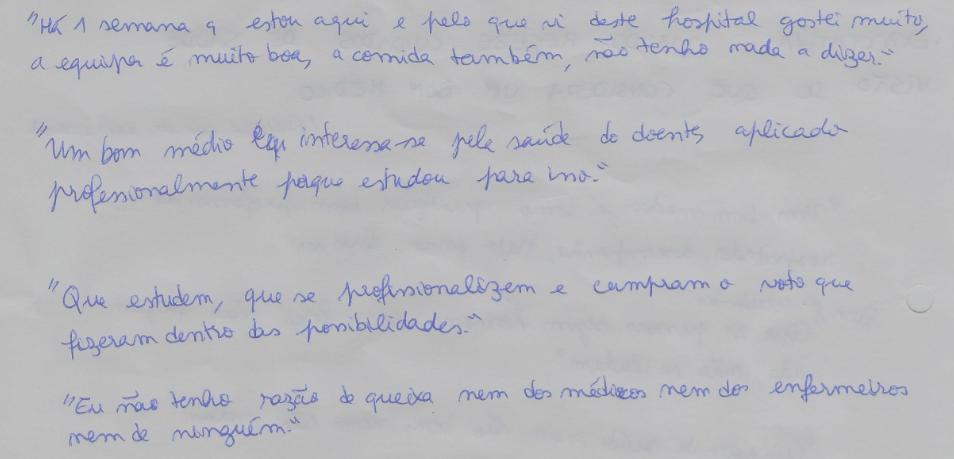 "Há 1 semana q estou aqui e pelo que vi deste hospital gostei muito,
a equipa é muito boa, a comida também, não tenho nada a dizer."
"Um bom médio interessa-se pela saúde do doente, aplicado
professionalmente porque estudou para isso."
"Que estudem, que se profissionalizem e cumpram o voto que
fizeram dentro das possibilidades."
"Eu não tenho razão de queixa nem dos médicos nem dos enfermeiros
nem de ninguém."